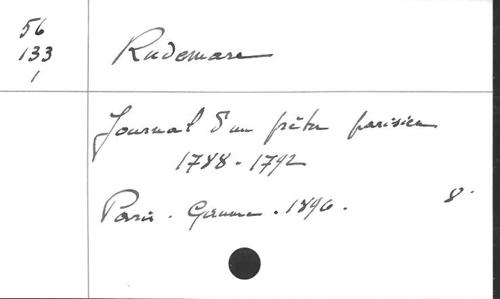 56
133
1
Rudemare
Journal d'un prêtre parisien
1788-1792
Paris. Gaume. 1896. 8°